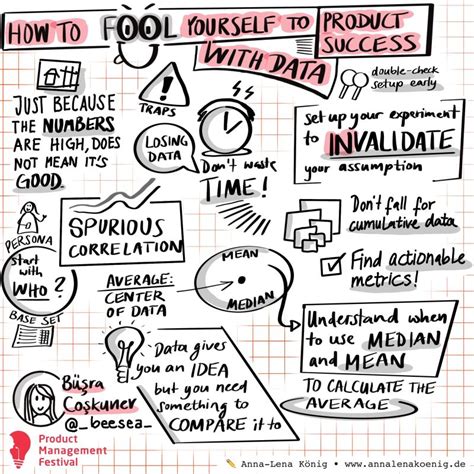 HOW TO FOOL YOURSELF TO PRODUCT SUCCESS
WITH DATA
JUST BECAUSE
THE NUMBERS
ARE HIGH, DOES
NOT MEAN IT'S
GOOD.
TRAPS
LOSING
DATA
Don't waste
TIME!
double-check
setup early
set up your experiment
to INVALIDATE
your assumption
PERSONA
Start
with
WHO?
BASE SET
SPURIOUS
CORRELATION
AVERAGE:
CENTER
OF DATA
MEAN
MEDIAN
Don't fall for
cumulative data
Find actionable
metrics!
Understand when
to use MEDIAN
and MEAN
TO CALCULATE THE
AVERAGE
Data gives
you an IDEA
but you need
something to
COMPARE it to
Büşra
Coşkuner
@_beesea_
Product
Management
Festival
Anna-Lena König • www.annalenakoenig.de